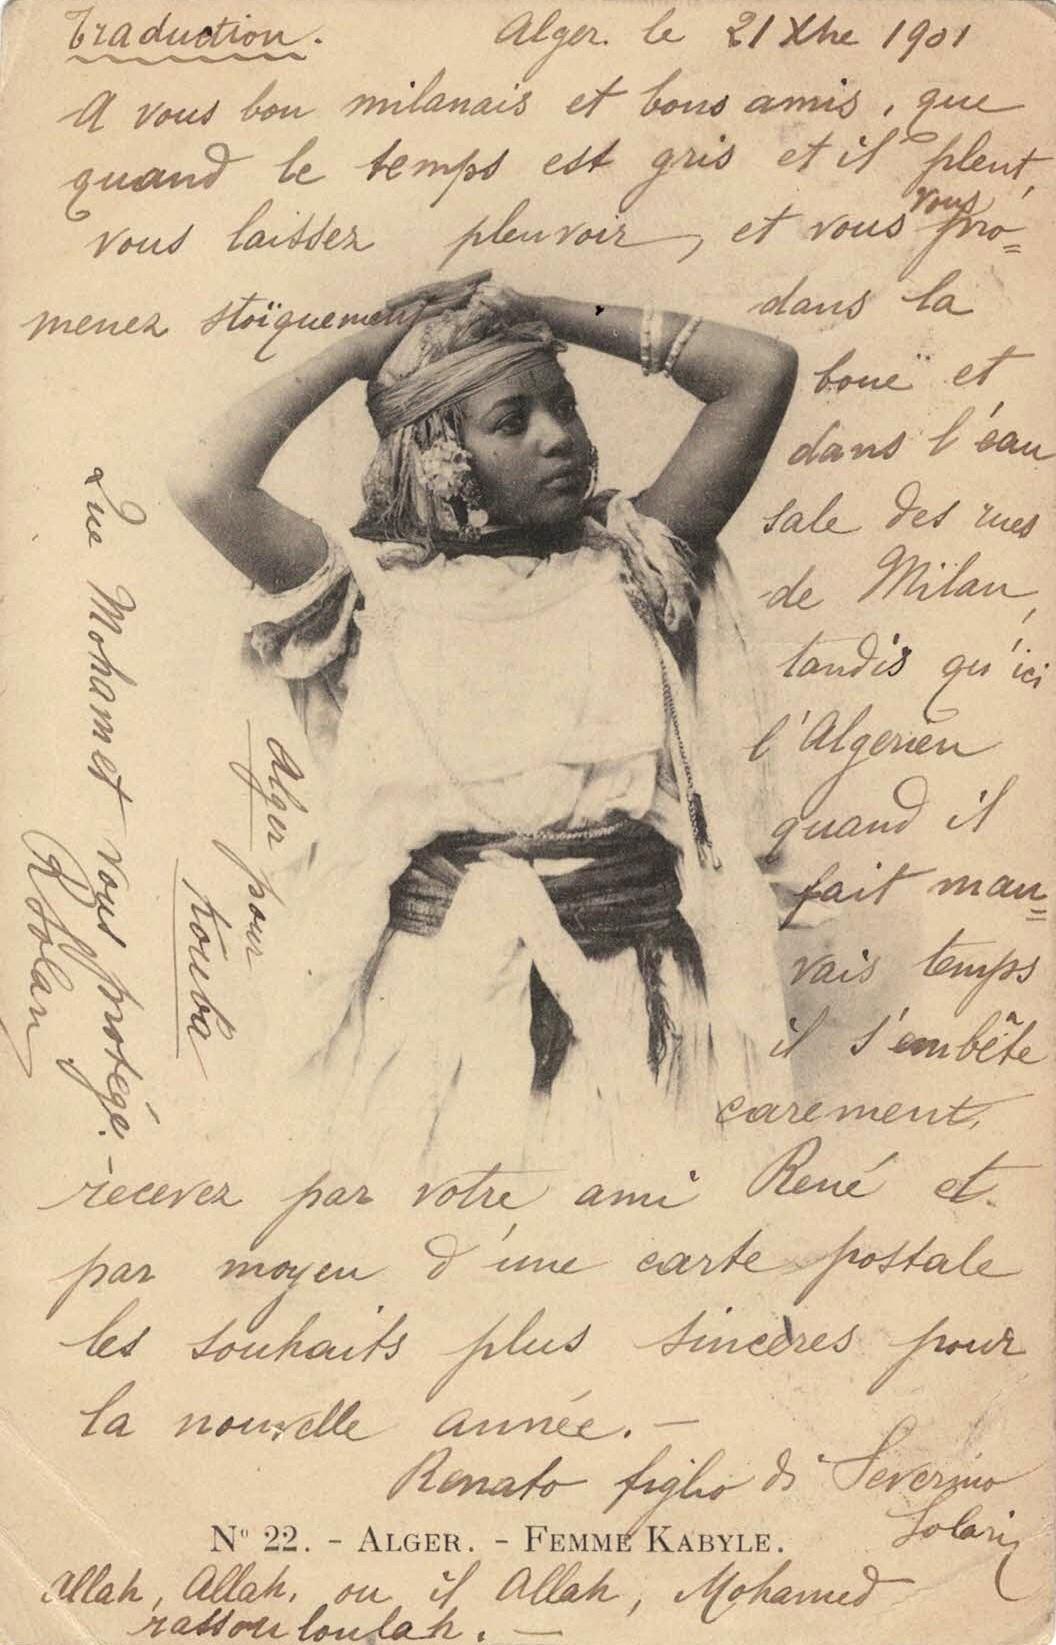 Traduction.
Alger. le 21 Xbre 1901
A vous bon milanais et bons amis, que
quand le temps est gris et il pleut,
vous laissez pleuvoir, et vous vous pro=
menez stoïquement dans la
boue et
dans l'éau
sale des rues
de Milan,
tandis qu'ici
l'Algerien
quand il
fait mau=
vais temps
il s'embête
carement,
recevez par votre ami René et
par moyen d'une carte postale
les souhaits plus sincères pour
la nouvelle année. —
Renato figlio di Severino
Solari
Nº 22. - ALGER. - FEMME KABYLE.
Allah, Allah, ou il Allah, Mohamed
rassou loulah. —
Que Mohamet vous protégé. -
R Solari
Alger pour
Kouba